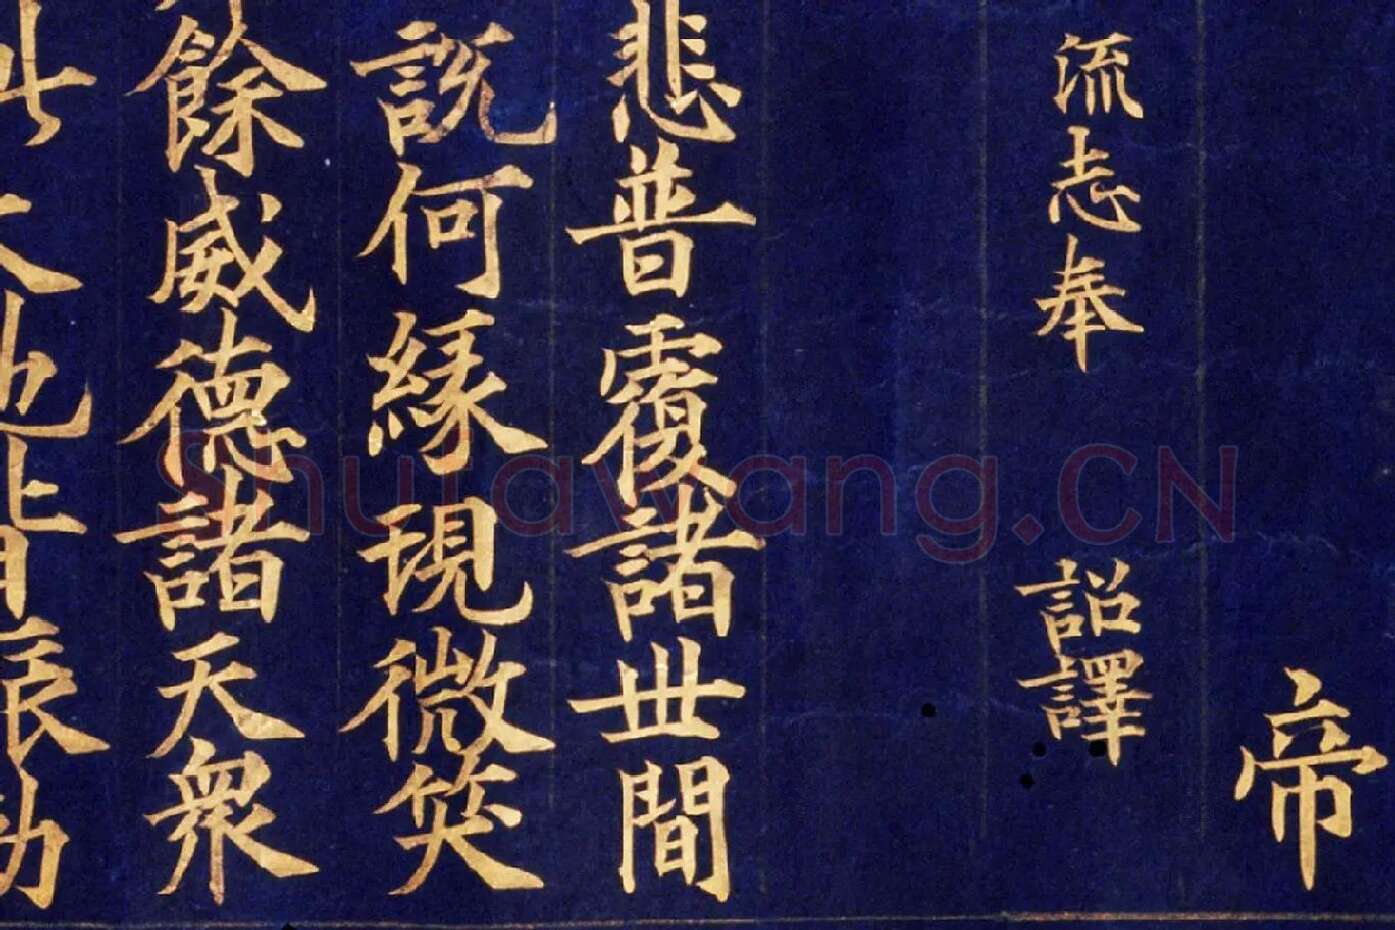 帝
流志奉 詔譯
悲普覆諸世間
説何縁現微笑
餘威德諸天衆
大地皆振動
Shufawang.CN